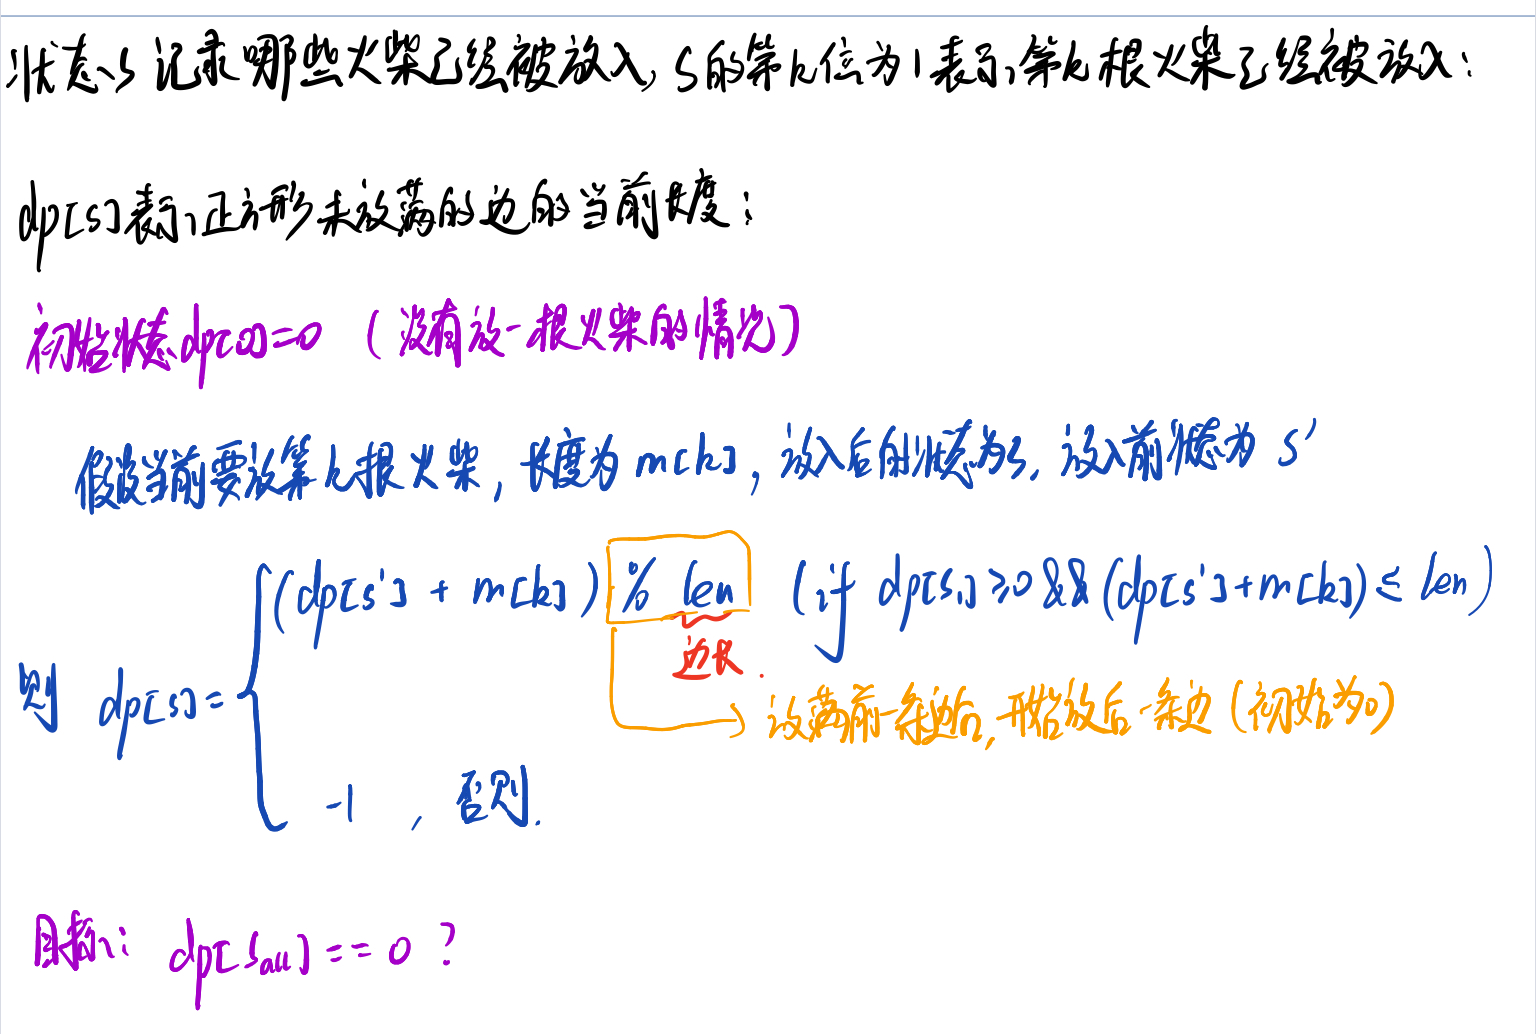 状态s记录哪些火柴已经被放入, s的第k位为1表示,第k根火柴已经被放入:
dp[s]表示,正方形未放满的边的当前长度:
初始状态dp[0]=0 (没有放一根火柴的情况)
假设当前要放第k根火柴, 长度为m[k], 放入后的状态为s, 放入前状态为s'
则 dp[s]= (dp[s'] + m[k]) % len (if dp[s,]≥0 && (dp[s']+m[k]) ≤ len)
边长.
放满前一条边后, 开始放后一条边 (初始为0)
-1 , 否则.
目标: dp[Sall] == 0 ?